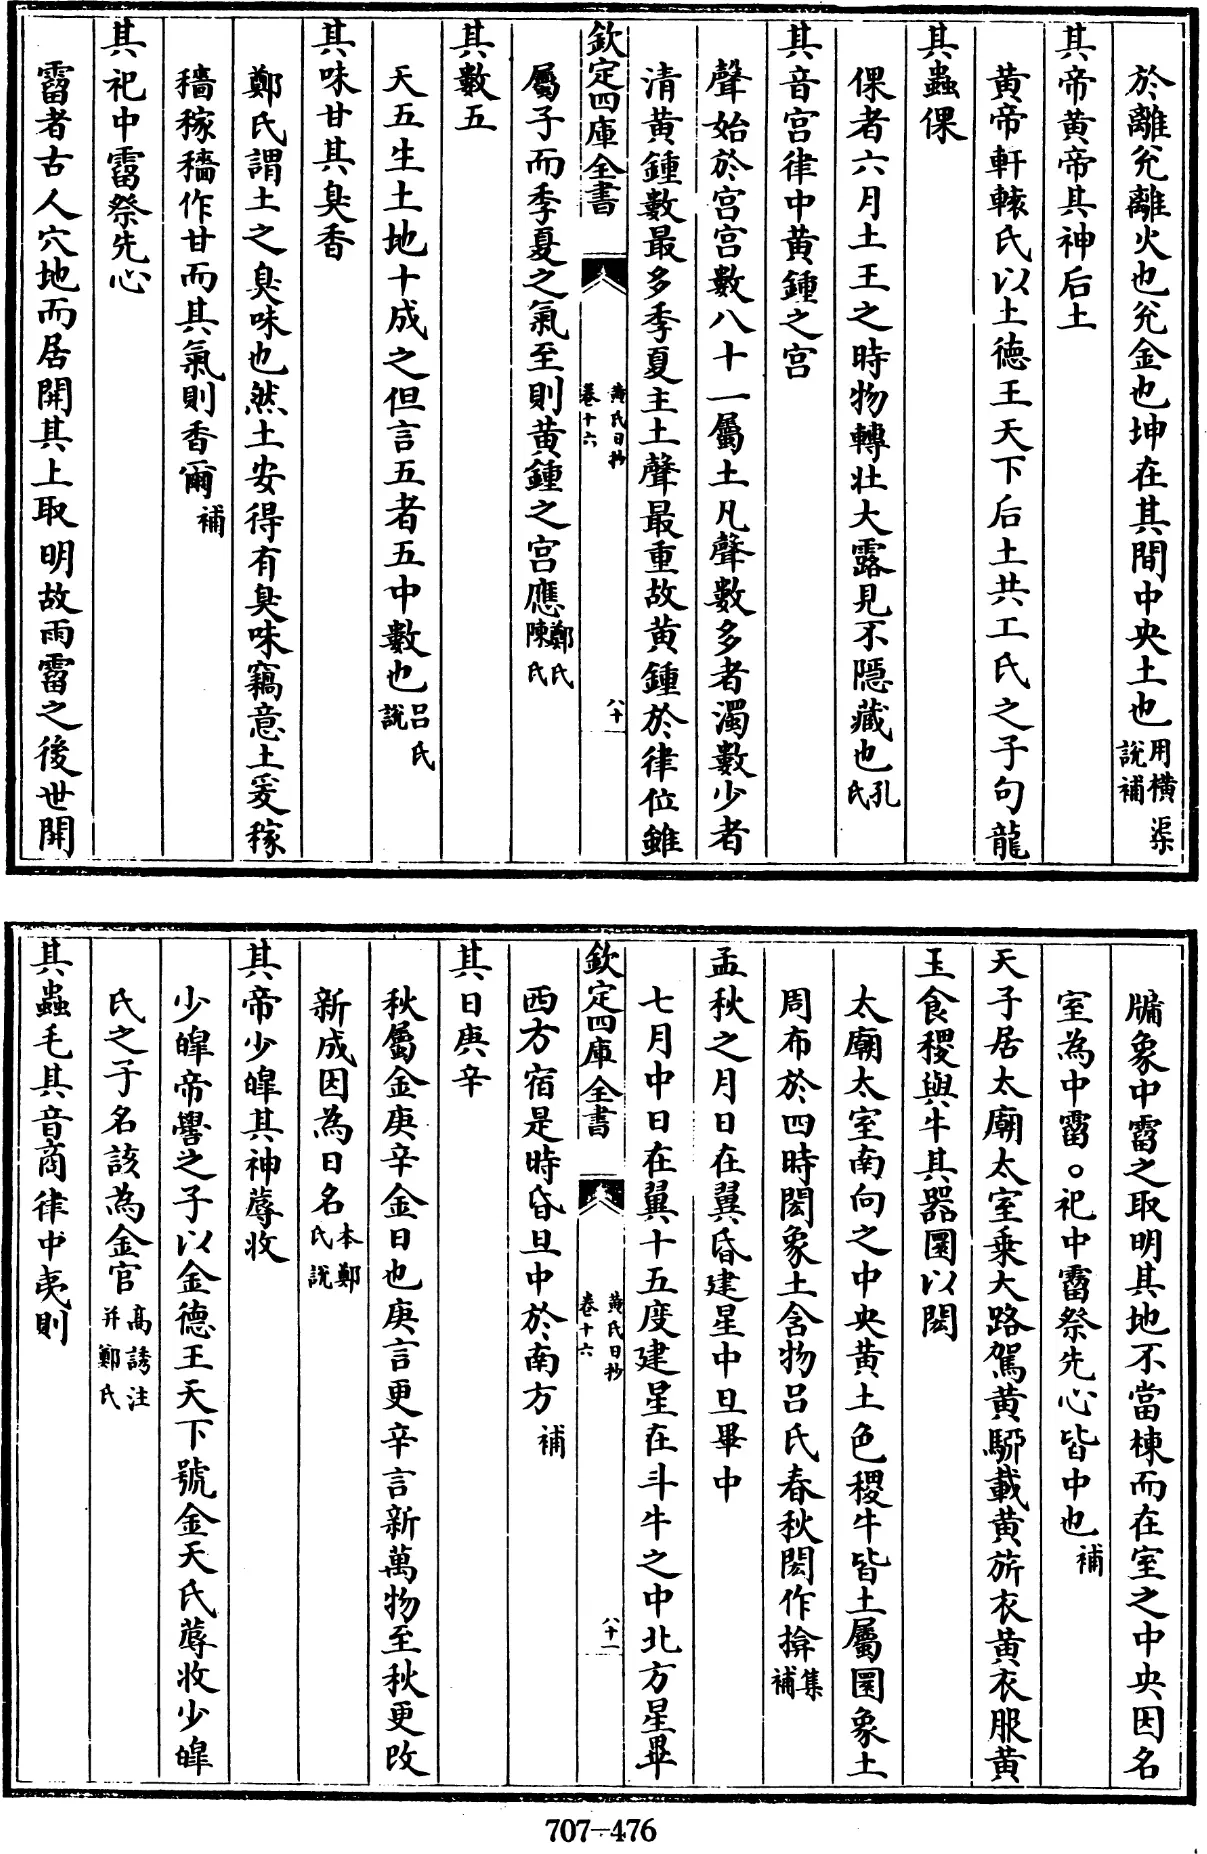 於離兊離火也兊金也坤在其間中央土也用橫渠說補
其帝黃帝其神后土
黃帝軒轅氏以土德王天下后土共工氏之子句龍
其蟲倮
倮者六月土王之時物轉壯大露見不隱藏也孔氏
其音宮律中黃鍾之宮
聲始於宮宮數八十一屬土凡聲數多者濁數少者
清黃鍾數最多季夏主土聲最重故黃鍾於律位雖
欽定四庫全書
黃氏日抄
卷十六
八十
屬子而季夏之氣至則黃鍾之宮應鄭氏陳氏
其數五
天五生土地十成之但言五者五中數也呂氏說
其味甘其臭香
鄭氏謂土之臭味也然土安得有臭味竊意土爰稼
穡稼穡作甘而其氣則香爾補
其祀中霤祭先心
霤者古人穴地而居開其上取明故雨霤之後世開
牖象中霤之取明其地不當棟而在室之中央因名
室為中霤○祀中霤祭先心皆中也補
天子居太廟太室乗大路駕黃駵載黃旂衣黃衣服黃
玉食稷與牛其器圜以閎
太廟太室南向之中央黃土色稷牛皆土屬圜象土
周布於四時閎象土含物呂氏春秋閎作揜集補
孟秋之月日在翼昏建星中旦畢中
七月中日在翼十五度建星在斗牛之中北方星畢
欽定四庫全書
黃氏日抄
卷十六
八十一
西方宿是時昏旦中於南方補
其日庚辛
秋屬金庚辛金日也庚言更辛言新萬物至秋更改
新成因為日名本鄭氏說
其帝少皥其神蓐收
少皥帝嚳之子以金德王天下號金天氏蓐收少皥
氏之子名該為金官高誘注并鄭氏
其蟲毛其音商律中夷則
707-476